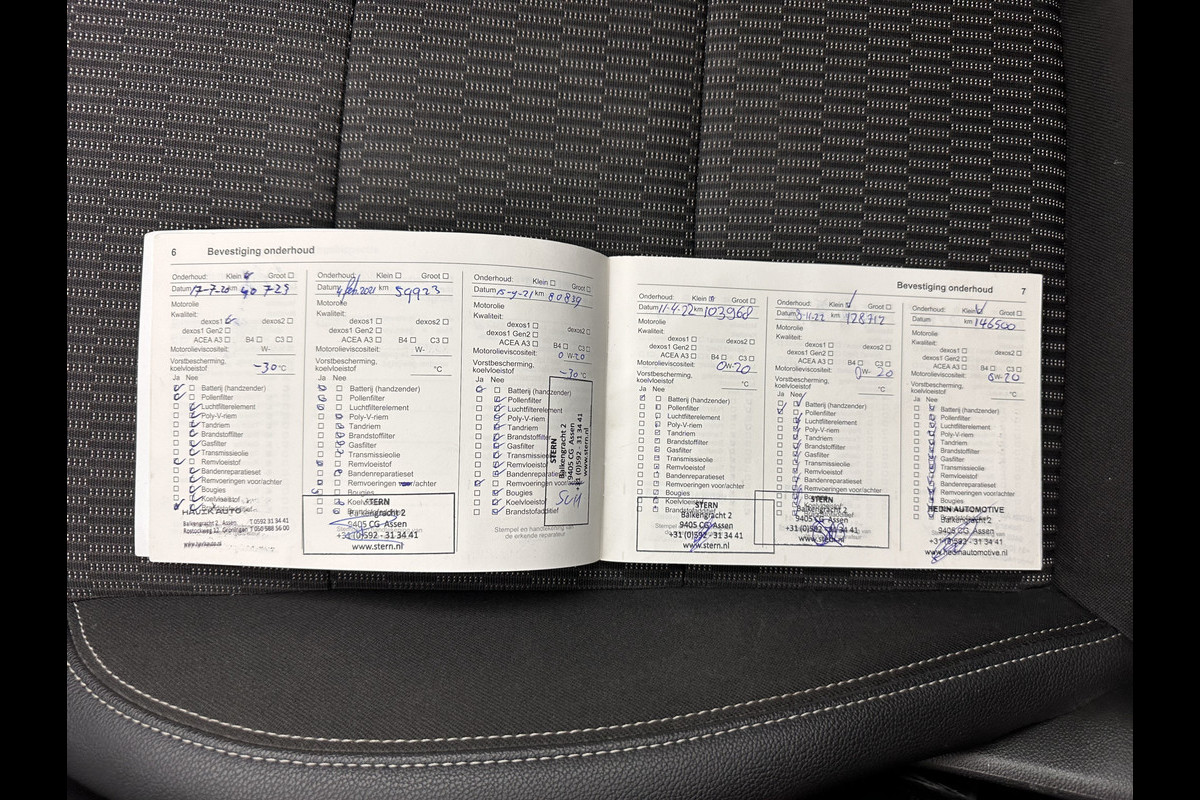 6 Bevestiging onderhoud
Onderhoud: Klein Groot
Datum 17-7-20 km 40 729
Motorolie
Kwaliteit:
dexos1 dexos2
dexos1 Gen2
ACEA A3 B4 C3
Motorolieviscositeit: W-
Vorstbescherming,
koelvloeistof -30 °C
Ja Nee
Batterij (handzender)
Pollenfilter
Luchtfilterelement
Poly-V-riem
Tandriem
Brandstoffilter
Gasfilter
Transmissieolie
Remvloeistof
Bandenreparatieset
Remvoeringen voor/achter
Bougies
Koelvloeistof
Balkengracht 2, Assen T 0592 31 34 41
Rostockweg 12, Groningen T 050 588 56 00
Onderhoud: Klein Groot
Datum 2021 km 59923
Motorolie
Kwaliteit:
dexos1 dexos2
dexos1 Gen2
ACEA A3 B4 C3
Motorolieviscositeit: W-
Vorstbescherming,
koelvloeistof °C
Ja Nee
Batterij (handzender)
Pollenfilter
Luchtfilterelement
Poly-V-riem
Tandriem
Brandstoffilter
Gasfilter
Transmissieolie
Remvloeistof
Bandenreparatieset
Remvoeringen voor/achter
Bougies
STERN
Balkengracht 2
9405 CG Assen
+31 (0)592 - 31 34 41
www.stern.nl
Onderhoud: Klein Groot
Datum 15-9-21 km 80839
Motorolie
Kwaliteit:
dexos1 dexos2
dexos1 Gen2
ACEA A3 B4 C3
Motorolieviscositeit: 0 W-20
Vorstbescherming,
koelvloeistof -30 °C
Ja Nee
Batterij (handzender)
Pollenfilter
Luchtfilterelement
Poly-V-riem
Tandriem
Brandstoffilter
Gasfilter
Transmissieolie
Remvloeistof
Bandenreparatieset
Remvoeringen voor/achter
Bougies
Koelvloeistof
Brandstofadditief
Stempel en handtekening van
de erkende reparateur
STERN
Balkengracht 2
9405 CG Assen
+31 (0)592 - 31 34 41
www.stern.nl
Bevestiging onderhoud 7
Onderhoud: Klein Groot
Datum 11-4-22 km 103968
Motorolie
Kwaliteit:
dexos1 dexos2
dexos1 Gen2
ACEA A3 B4 C3
Motorolieviscositeit: 0W-20
Vorstbescherming,
koelvloeistof °C
Ja Nee
Batterij (handzender)
Pollenfilter
Luchtfilterelement
Poly-V-riem
Tandriem
Brandstoffilter
Gasfilter
Transmissieolie
Remvloeistof
Bandenreparatieset
Remvoeringen voor/achter
Bougies
Koelvloeistof
STERN
Balkengracht 2
9405 CG Assen
+31 (0)592 - 31 34 41
www.stern.nl
Onderhoud: Klein Groot
Datum 8-11-22 km 128712
Motorolie
Kwaliteit:
dexos1 dexos2
dexos1 Gen2
ACEA A3 B4 C3
Motorolieviscositeit: 0W-20
Vorstbescherming,
koelvloeistof °C
Ja Nee
Batterij (handzender)
Pollenfilter
Luchtfilterelement
Poly-V-riem
Tandriem
Brandstoffilter
Gasfilter
Transmissieolie
Remvloeistof
Bandenreparatieset
Remvoeringen voor/achter
Bougies
STERN
Balkengracht 2
9405 CG Assen
+31 (0)592 - 31 34 41
www.stern.nl
Onderhoud: Klein Groot
Datum km 146500
Motorolie
Kwaliteit:
dexos1 dexos2
dexos1 Gen2
ACEA A3 B4 C3
Motorolieviscositeit: 0W-20
Vorstbescherming,
koelvloeistof °C
Ja Nee
Batterij (handzender)
Pollenfilter
Luchtfilterelement
Poly-V-riem
Tandriem
Brandstoffilter
Gasfilter
Transmissieolie
Remvloeistof
Bandenreparatieset
Remvoeringen voor/achter
Bougies
HEDIN AUTOMOTIVE
Balkengracht 2
9405 CG Assen
+31 (0)592 - 31 34 41
www.hedinautomotive.nl